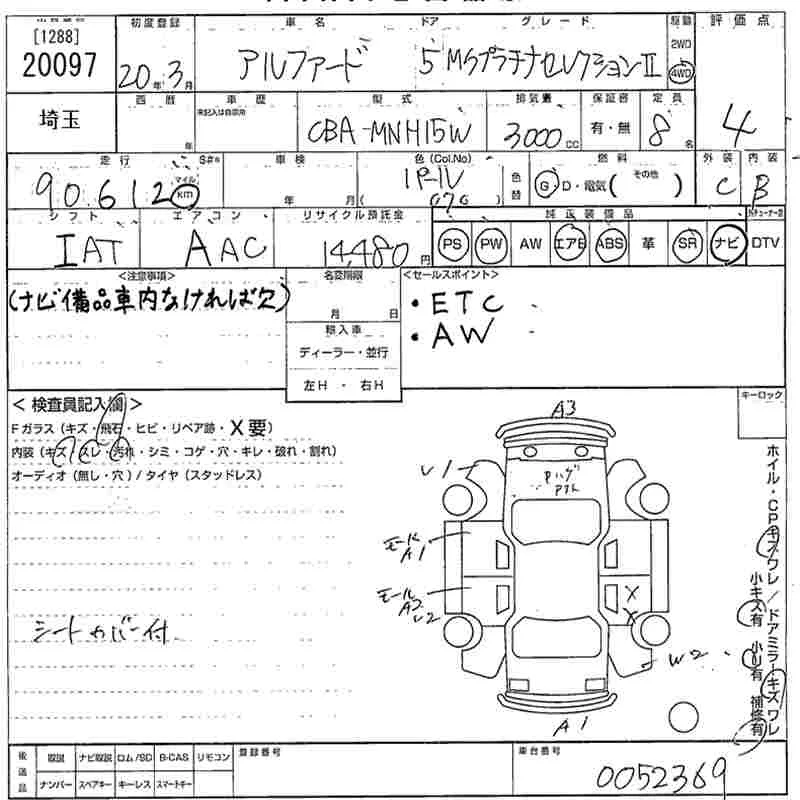 [1288]
20097
初度登録 20年3月
車名 アルファード
ドア 5
グレード MSプラチナセレクションⅡ
駆動 2WD 4WD
評価点 4
埼玉
西暦 年
車歴 未記入は自家用
型式 CBA-MNH15W
排気量 3000CC
保証書 有・無
定員 8名
走行 90612 マイル km
S#
車検 年 月
色(Col.No) 1P-1V
( 070 )
色替
燃料 G・D・電気 ( その他 )
外装 C
内装 B
シフト IAT
エアコン AAC
リサイクル預託金 14,480円
純正装備品
PS PW AW エアB ABS 革 SR ナビ DTV
<注意事項>
(ナビ備品車内なければ欠)
名変期限
月 日
輸入車
ディーラー・並行
左H ・ 右H
<セールスポイント>
・ETC
・AW
<検査員記入欄>
Fガラス(キズ・飛石・ヒビ・リペア跡・X要)
内装(キズ・スレ・汚れ・シミ・コゲ・穴・キレ・破れ・割れ)
オーディオ(無し・穴)/タイヤ(スタッドレス)
キーロック
A3
U1
Pハゲ
モール
A1
モール
A2
U2
X
X
W2
A1
シートカバー付
ホイル・CPキズワレ/ドアミラーキズワレ
小キズ有 小U有 補修有
後送品
取説 ナビ取説 ロム/SD B-CAS リモコン
ナンバー スペアキー キーレス スマートキー
登録番号
車台番号
0052369